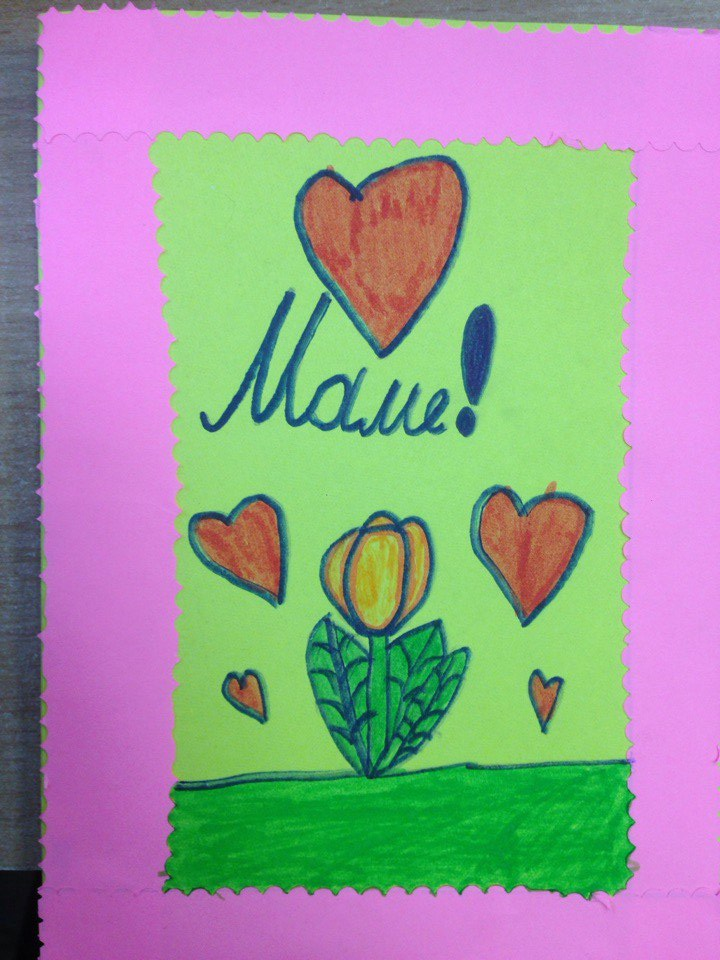 Маме!